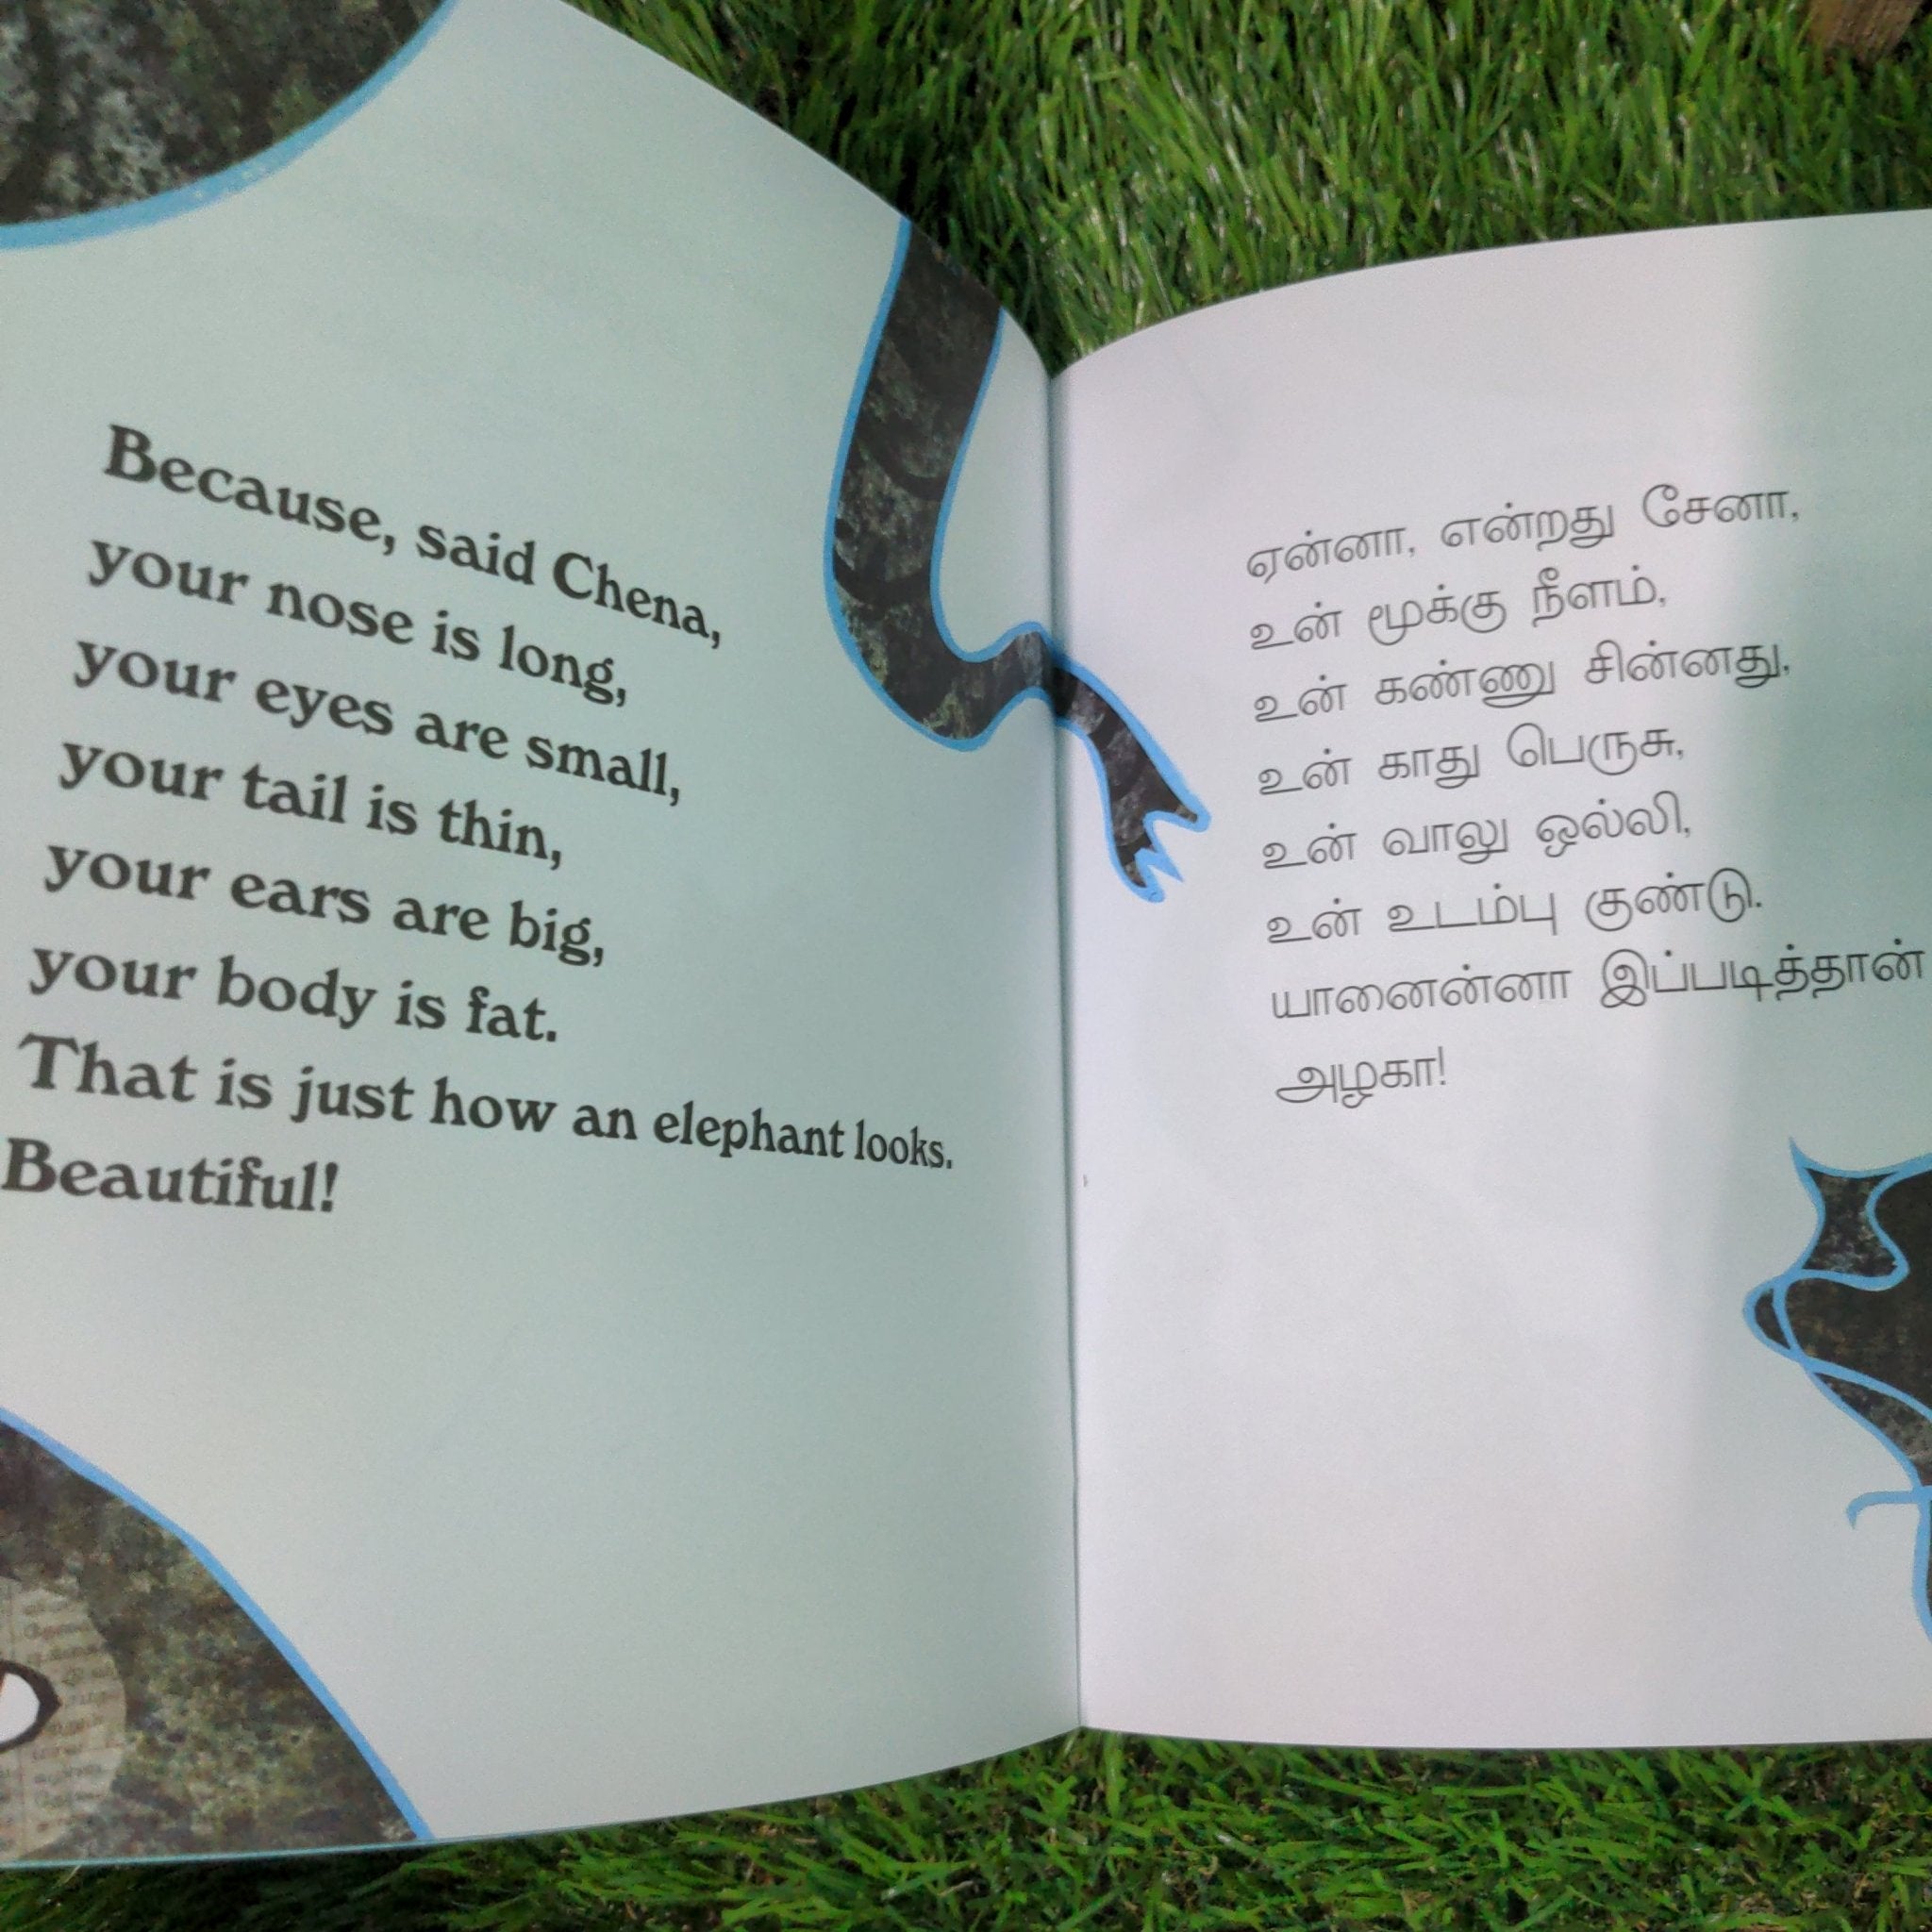 Because, said Chena,
your nose is long,
your eyes are small,
your tail is thin,
your ears are big,
your body is fat.
That is just how an elephant looks.
Beautiful!
ஏன்னா, என்றது சேனா,
உன் மூக்கு நீளம்,
உன் கண்ணு சின்னது,
உன் காது பெருசு,
உன் வாலு ஒல்லி,
உன் உடம்பு குண்டு.
யானைன்னா இப்படித்தான்
அழகா!